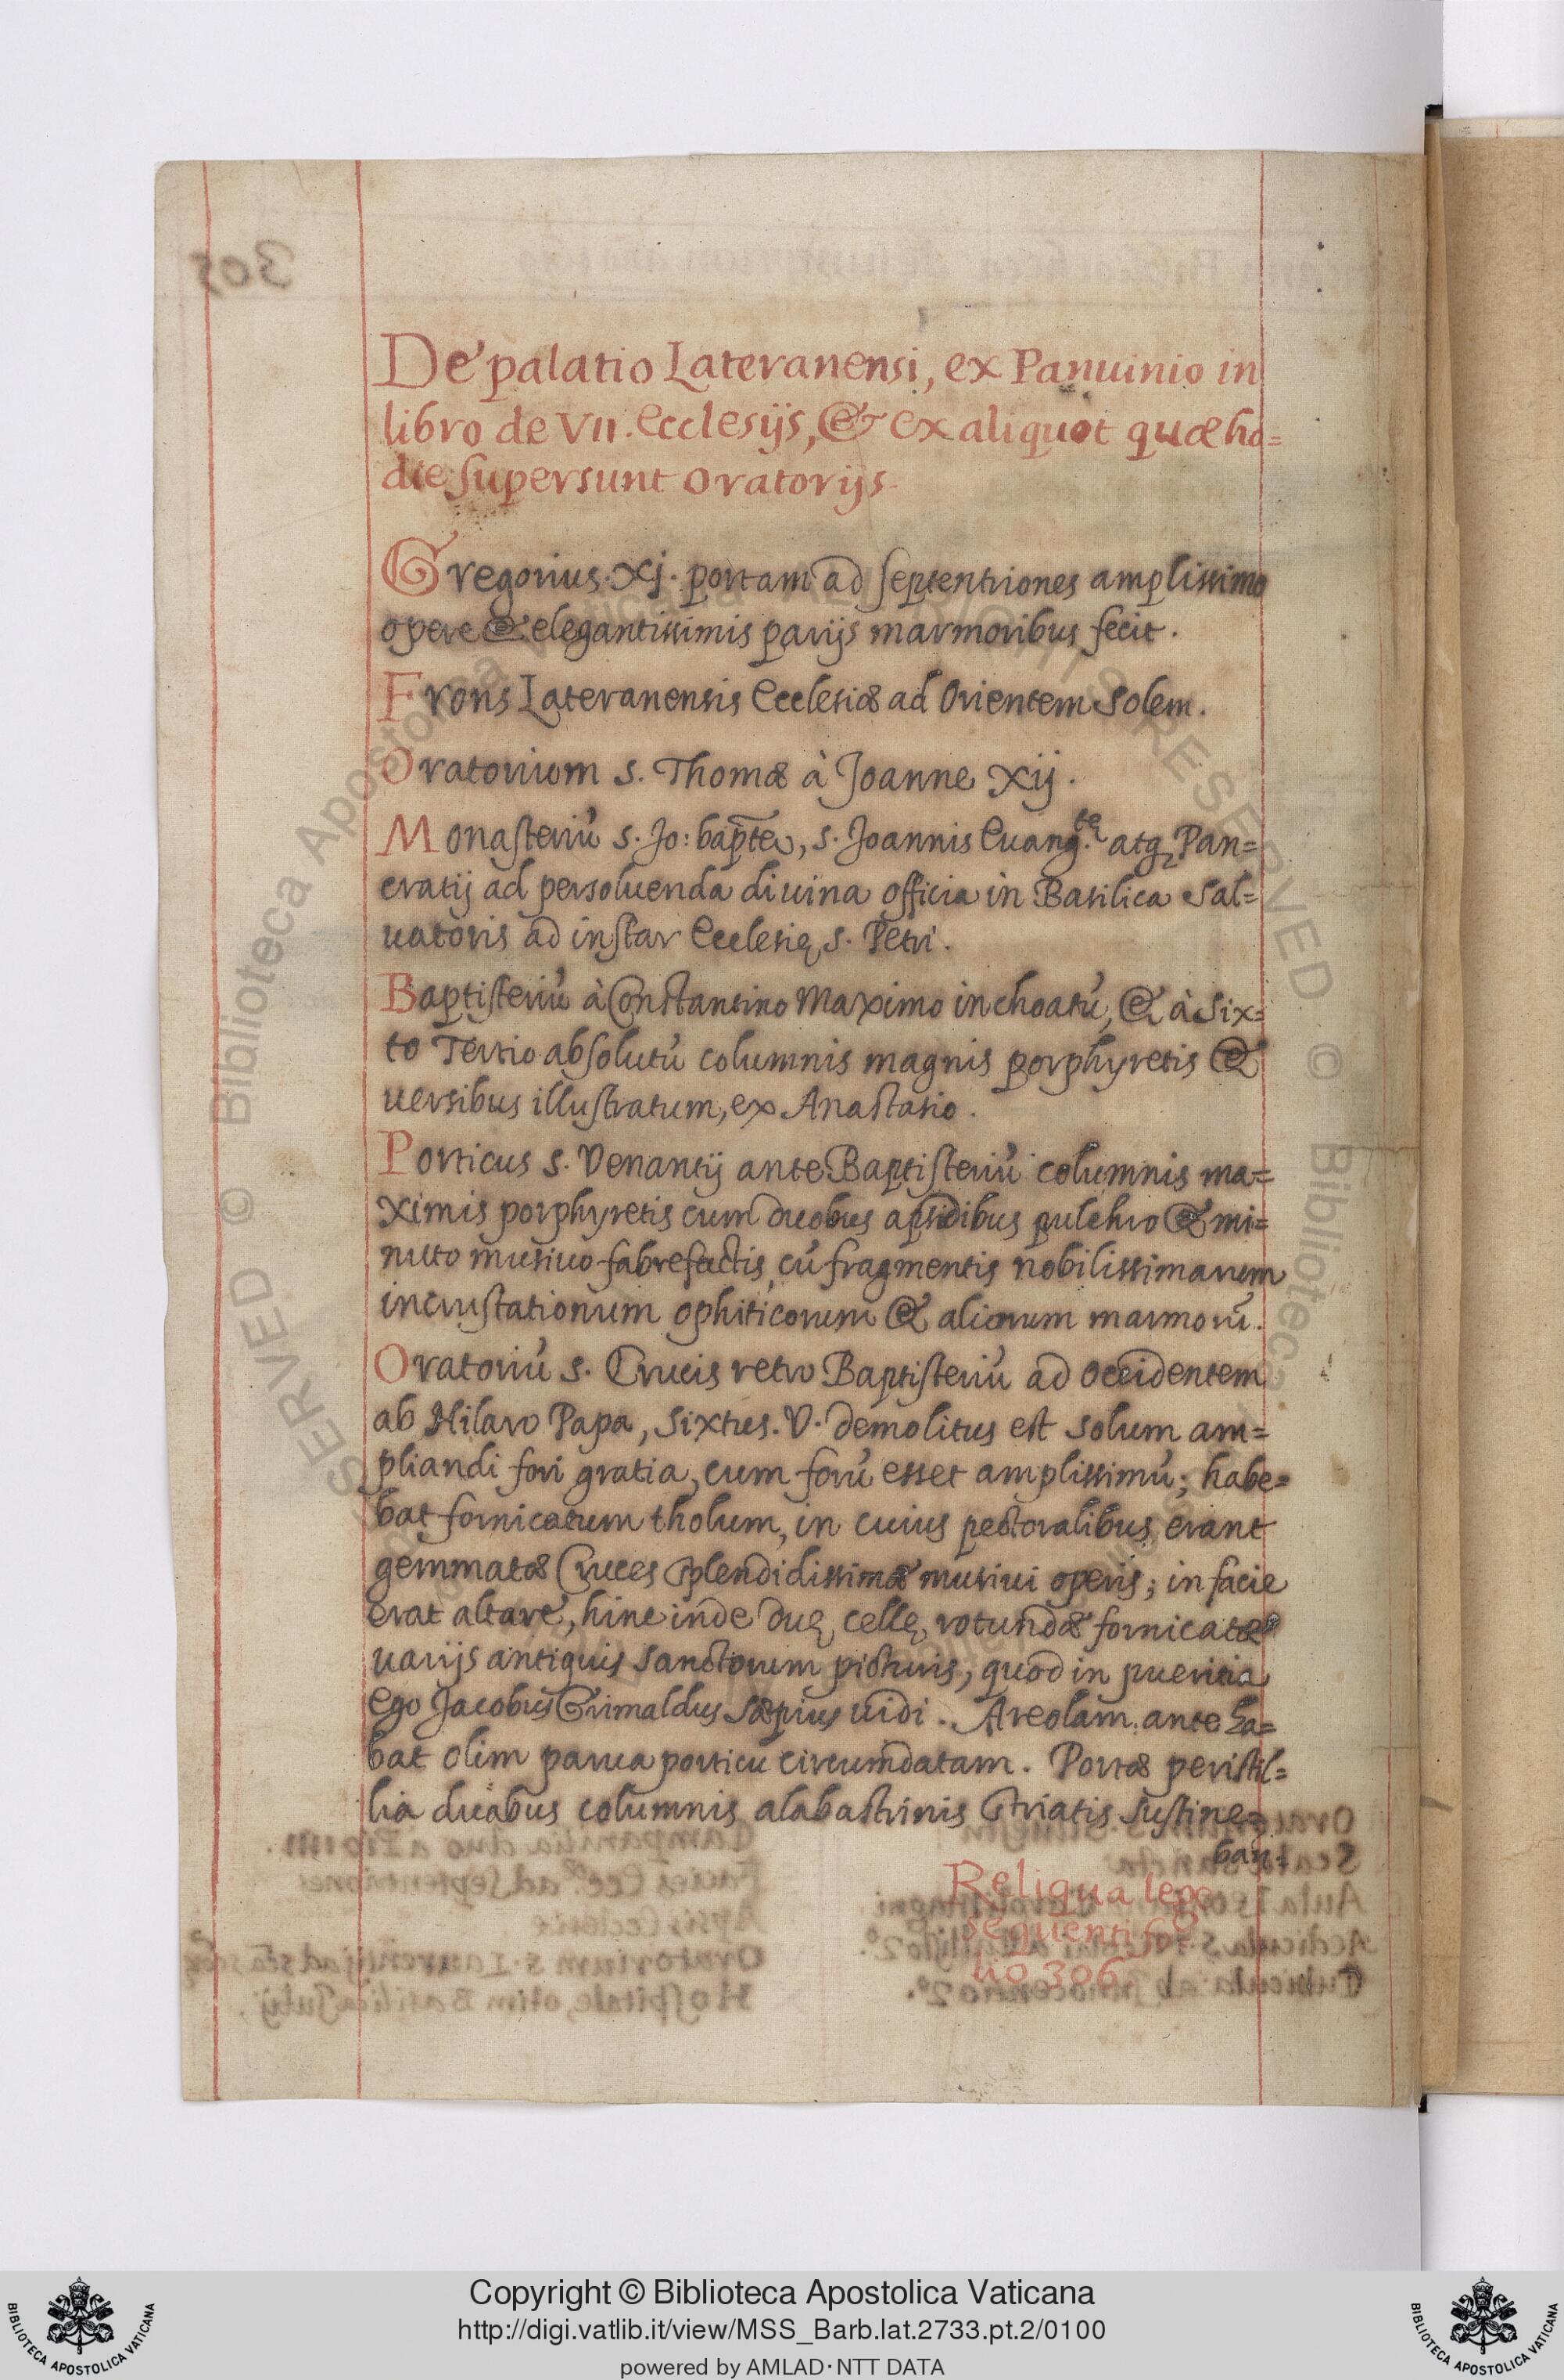 De palatio Lateranensi, ex Panuinio in
libro de VII. Ecclesijs, & ex aliquot quæ ho=
die supersunt Oratorijs.
Gregorius. XI. portam ad septentriones amplissimo
opere & elegantissimis parijs marmoribus fecit.
Frons Lateranensis Ecclesiæ ad Orientem Solem.
Oratorium S. Thomæ à Joanne XIJ.
Monasteriū S. Jo: bapte, S. Joannis Euang.te atq Pan=
cratij ad persoluenda diuina officia in Basilica Sal=
uatoris ad instar Ecclesię S. Petri.
Baptisteriū à Constantino Maximo inchoatū, & à Six=
to Tertio absolutū columnis magnis porphyretis &
uersibus illustratum, ex Anastasio.
Porticus S. Venantij ante Baptisteriū columnis ma=
ximis porphyretis cum duobus apsidibus pulchro & mi=
nuto musiuo fabrefactis, cū fragmentis nobilissimarum
incrustationum ophiticorum & aliorum marmorū.
Oratoriū S. Crucis retro Baptisteriū ad Occidentem
ab Hilaro Papa, Sixtus. V. demolitus est solum am=
pliandi fori gratia, cum forū esset amplissimū; habe=
bat fornicatum tholum, in cuius pectoralibus erant
gemmatæ Cruces splendidissimæ musiui operis; in facie
erat altare, hinc inde duę cellę rotundæ fornicatæ
uarijs antiquis Sanctorum picturis, quod in pueritia
ego Jacobus Grimaldus sæpius uidi. Areolam ante ha=
bat olim parua porticu circumdatam. Portæ peristil=
lia duabus columnis alabastrinis striatis sustine=
ban=
Reliqua lege
sequenti fo
lio 306
305
Copyright © Biblioteca Apostolica Vaticana
http://digi.vatlib.it/view/MSS_Barb.lat.2733.pt.2/0100
powered by AMLAD·NTT DATA
BIBLIOTECA APOSTOLICA VATICANA
BIBLIOTECA APOSTOLICA VATICANA